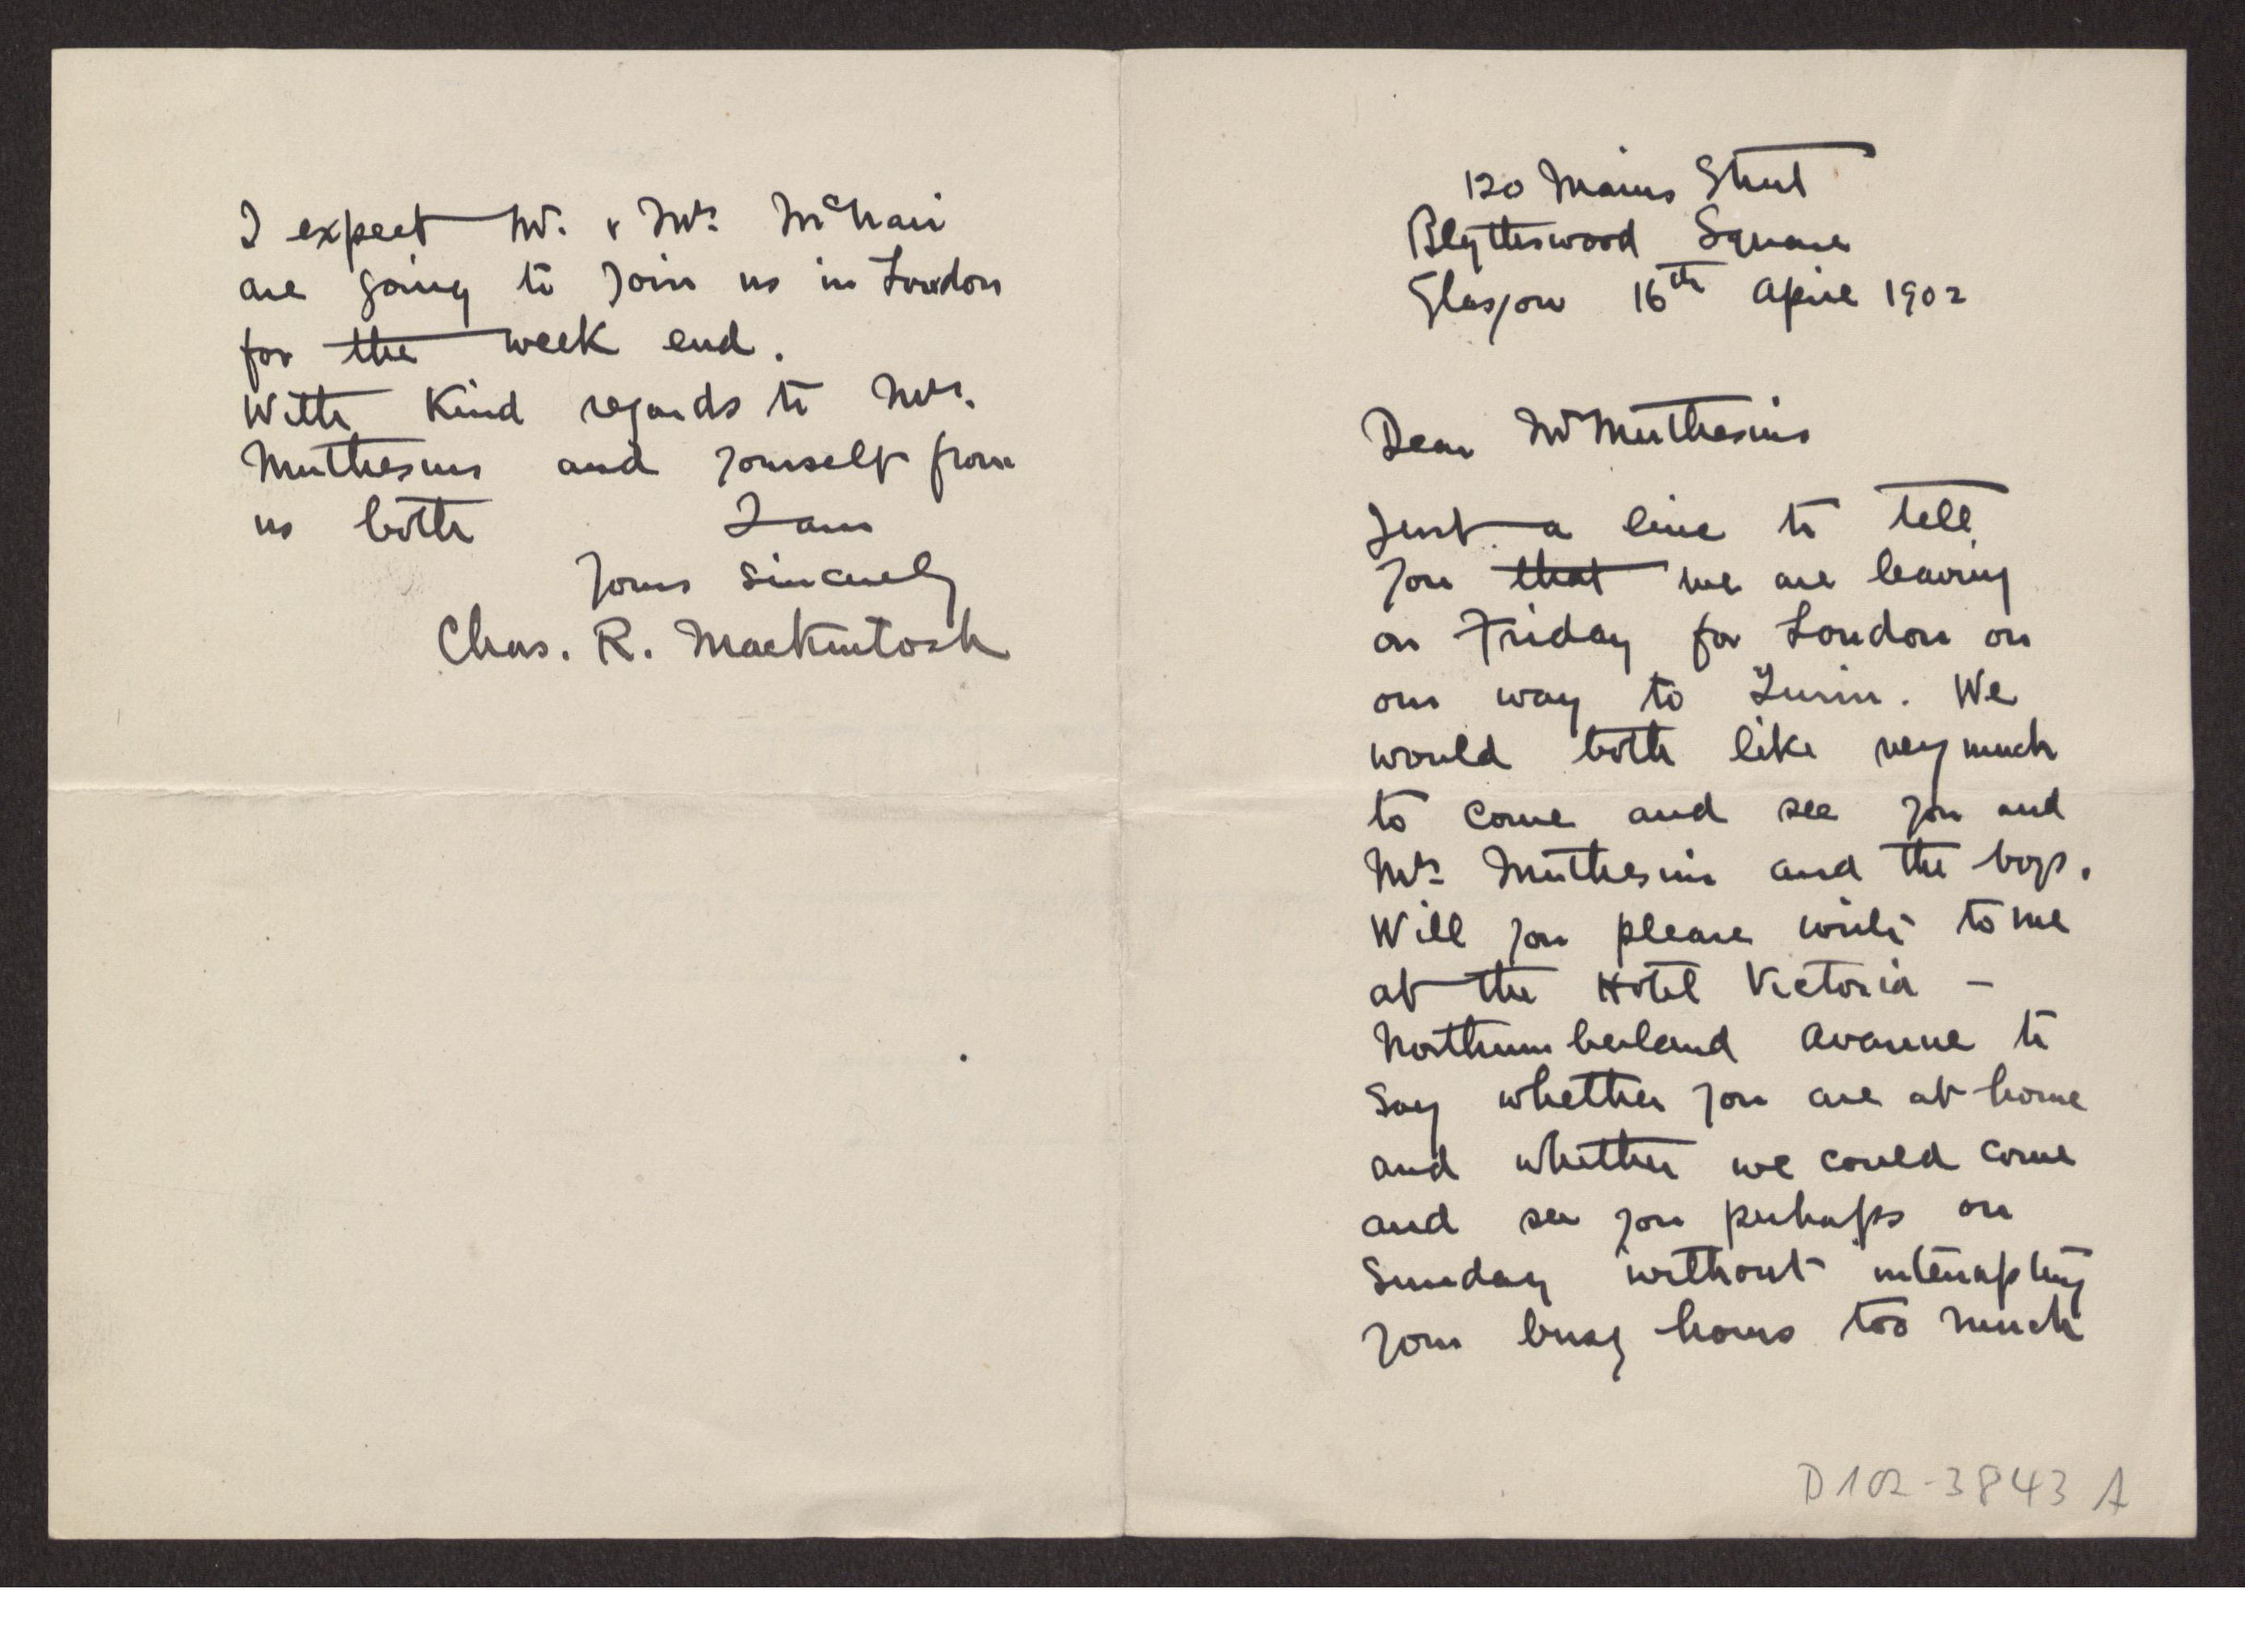 120 Mains Street
Blythswood Square
Glasgow 16th April 1902
Dear Mr Muthesius
Just a line to tell
you that we are leaving
on Friday for London on
our way to Turin. We
would both like very much
to come and see you and
Mrs Muthesius and the boys.
Will you please write to me
at the Hotel Victoria –
Northumberland Avenue to
say whether you are at home
and whether we could come
and see you perhaps on
Sunday without interupting
your busy hours too much
D102-3843 A
I expect Mr. & Mrs McNair
are going to join us in London
for the week end.
With kind regards to Mrs.
Muthesius and yourself from
us both I am
Yours sincerely
Chas. R. Mackintosh